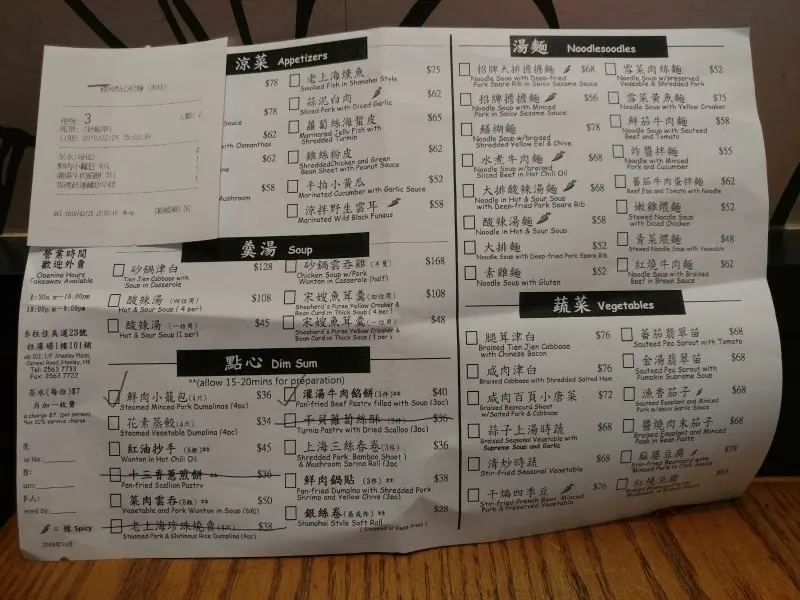 3
涼菜 Appetizers
$78
$78
$62
$62
$58
老上海燻魚 $75
Smoked Fish in Shanghai Style
蒜泥白肉 $62
Sliced Pork with Diced Garlic
蘿蔔絲海蜇皮 $65
Marinated Jelly Fish with
Shredded Turnip
雞絲粉皮 $62
Shredded Chicken and Green
Bean Sheet with Peanut Sauce
手拍小黃瓜 $52
Marinated Cucumber with Garlic Sauce
涼拌野生雲耳 $58
Marinated Wild Black Fungus
羹湯 Soup
砂鍋津白 $128
Tien Jien Cabbage with
Soup in Casserole
酸辣湯 (四位用) $108
Hot & Sour Soup (4 per)
酸辣湯 (一位用) $45
Hot & Sour Soup (1 per)
砂鍋雲吞雞 (半隻) $168
Chicken Soup w/Pork
Wonton in Casserole (half)
宋嫂魚茸羹 (四位用) $108
Shepherd's Purse Yellow Croaker &
Bean Curd in Thick Soup (4 per)
宋嫂魚茸羹 (一位用) $48
Shepherd's Purse Yellow Croaker &
Bean Curd in Thick Soup (1 per)
營業時間
歡迎外賣
Opening Hours
Takeaway Available
18:00pm-9:00pm
Tel: 2563 7733
Fax: 2563 7722
茶水(每位)$7
點心 Dim Sum
**(allow 15-20mins for preparation)
鮮肉小籠包 (4只) $36
Steamed Minced Pork Dumplings (4pc)
花素蒸餃 (4只) $34
Steamed Vegetable Dumpling (4pc)
紅油抄手 (6粒) $45
Wonton in Hot Chili Oil
十三香蔥煎餅 ** $36
Pan-fried Scallion Pastry
菜肉雲吞 (6粒) ** $50
Vegetable and Pork Wonton in Soup (6pc)
老上海珍珠燒賣 (4只) $38
Steamed Pork & Glutinous Rice Dumpling (4pc)
灌湯牛肉餡餅 (2件)** $40
Pan-fried Beef Pastry filled with Soup (3pc)
干貝蘿蔔絲酥 (3件)** $36
Turnip Pastry with Dried Scallop (3pc)
上海三絲春卷 (3件) $36
Shredded Pork, Bamboo Shoot
& Mushroom Spring Roll (3pc)
鮮肉鍋貼 (3件) ** $38
Pan-fried Dumpling with Shredded Pork
Shrimp and Yellow Chive (3pc)
銀絲卷 ** $28
Shanghai Style Soft Roll
(Steamed or Deep-fried)
= 辣 Spicy
湯麵 Noodlesoodles
招牌大排擔擔麵 $68
Noodle Soup with Deep-fried
Pork Spare Rib in Spicy Sesame Sauce
招牌擔擔麵 $56
Noodle Soup with Minced
Pork in Spicy Sesame Sauce
鱔糊麵 $78
Noodle Soup w/braised
Shredded Yellow Eel & Chive
水煮牛肉麵 $68
Noodle Soup w/braised
Sliced Beef in Hot Chili Oil
大排酸辣湯麵 $68
Noodle in Hot & Sour Soup
with Deep-fried Pork Spare Rib
酸辣湯麵 $58
Noodle in Hot & Sour Soup
大排麵 $52
Noodle Soup with Deep-fried Pork Spare Rib
素雞麵 $52
Noodle Soup with Gluten
雪菜肉絲麵 $52
Noodle Soup w/preserved
Vegetable & Shredded Pork
雪菜黃魚麵 $75
Noodle Soup with Yellow Croaker
鮮茄牛肉麵 $58
Noodle Soup with Sauteed
Beef and Tomato
炸醬拌麵 $55
Noodle with Minced
Pork and Cucumber
蕃茄牛肉蛋拌麵 $62
Beef Egg and Tomato with Noodle
嫩雞煨麵 $52
Stewed Noodle Soup
with Diced Chicken
青菜煨麵 $48
Stewed Noodle Soup with Vegetable
紅燒牛肉麵 $62
Noodle Soup with Braised
Beef in Brown Sauce
蔬菜 Vegetables
腿茸津白 $76
Braised Tien Jien Cabbage
with Chinese Bacon
咸肉津白 $76
Braised Cabbage with Shredded Salted Ham
咸肉百頁小唐菜 $72
Braised Beancurd Sheet
w/Salted Pork & Cabbage
蒜子上湯時蔬 $68
Braised Seasonal Vegetable with
Supreme Soup and Garlic
清炒時蔬 $68
Stir-fried Seasonal Vegetable
干煸四季豆 $76
Stir-fried French Bean, Minced
Pork & Preserved Vegetable
蕃茄翡翠苗 $68
Sauteed Pea Sprout with Tomato
金湯翡翠苗 $68
Sauteed Pea Sprout with
Pumpkin Supreme Soup
魚香茄子 $68
Sauteed Eggplant and Minced
Pork w/Spicy Garlic Sauce
醬燒肉末茄子 $68
Braised Eggplant and Minced
Pork in Bean Paste
麻婆豆腐 $78
Stir-fried Beancurd with
Minced Pork in Chili Sauce
紅燒豆腐